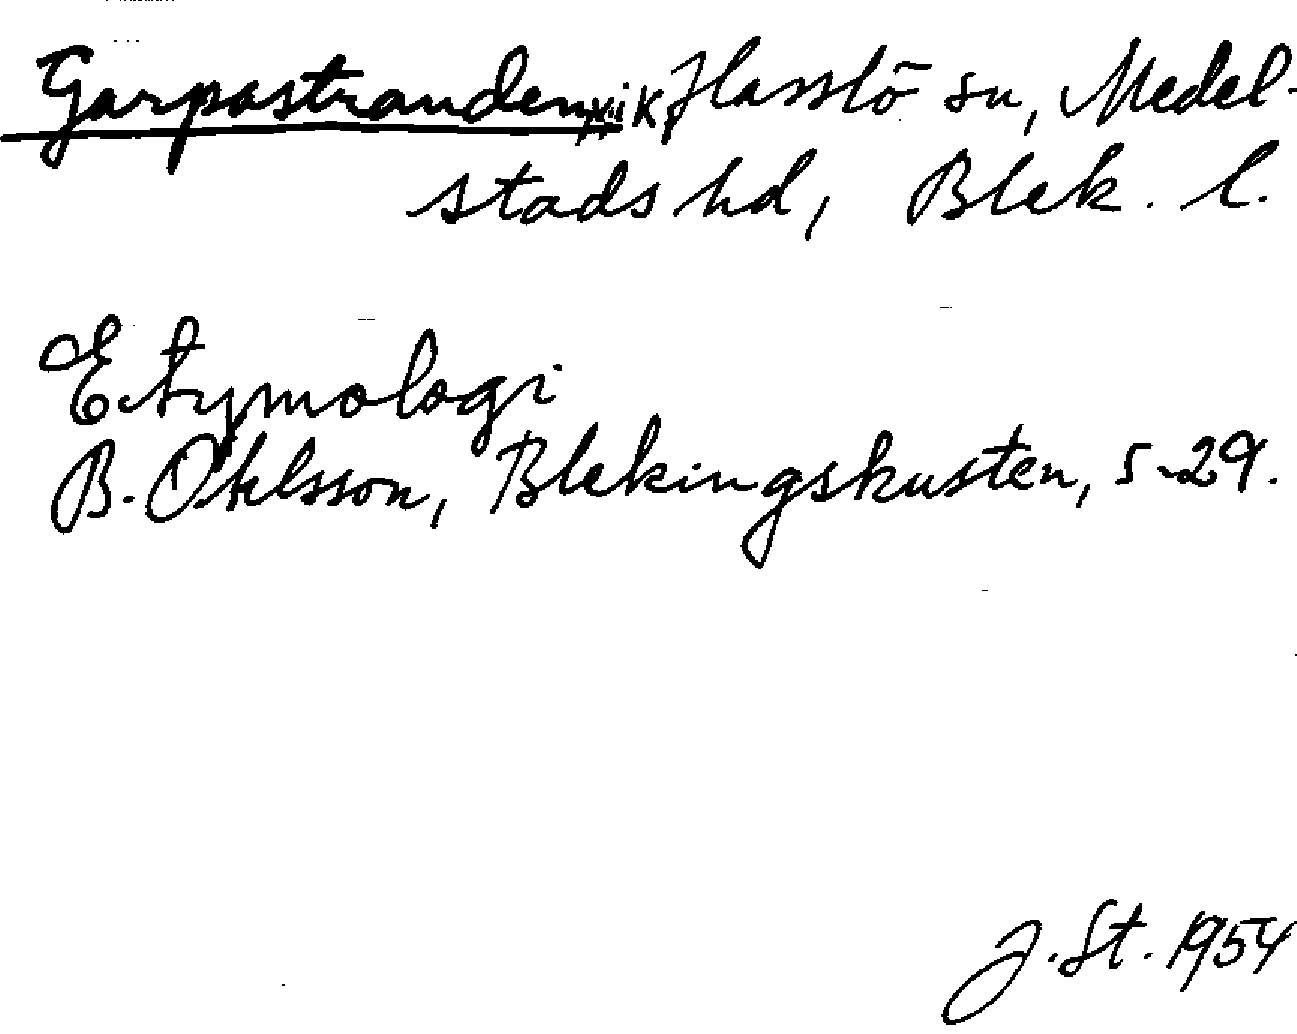 Garpastranden, vik, Hasslö sn, Medel-
stads hd, Blek. l.
Etymologi
B. Ohlsson, Blekingskusten, s. 29.
J. St. 1954